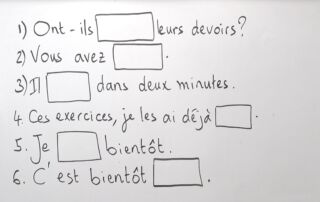 1) Ont-ils leurs devoirs?
2) Vous avez .
3) Il dans deux minutes.
4. Ces exercices, je les ai déjà .
5. Je bientôt.
6. C'est bientôt .